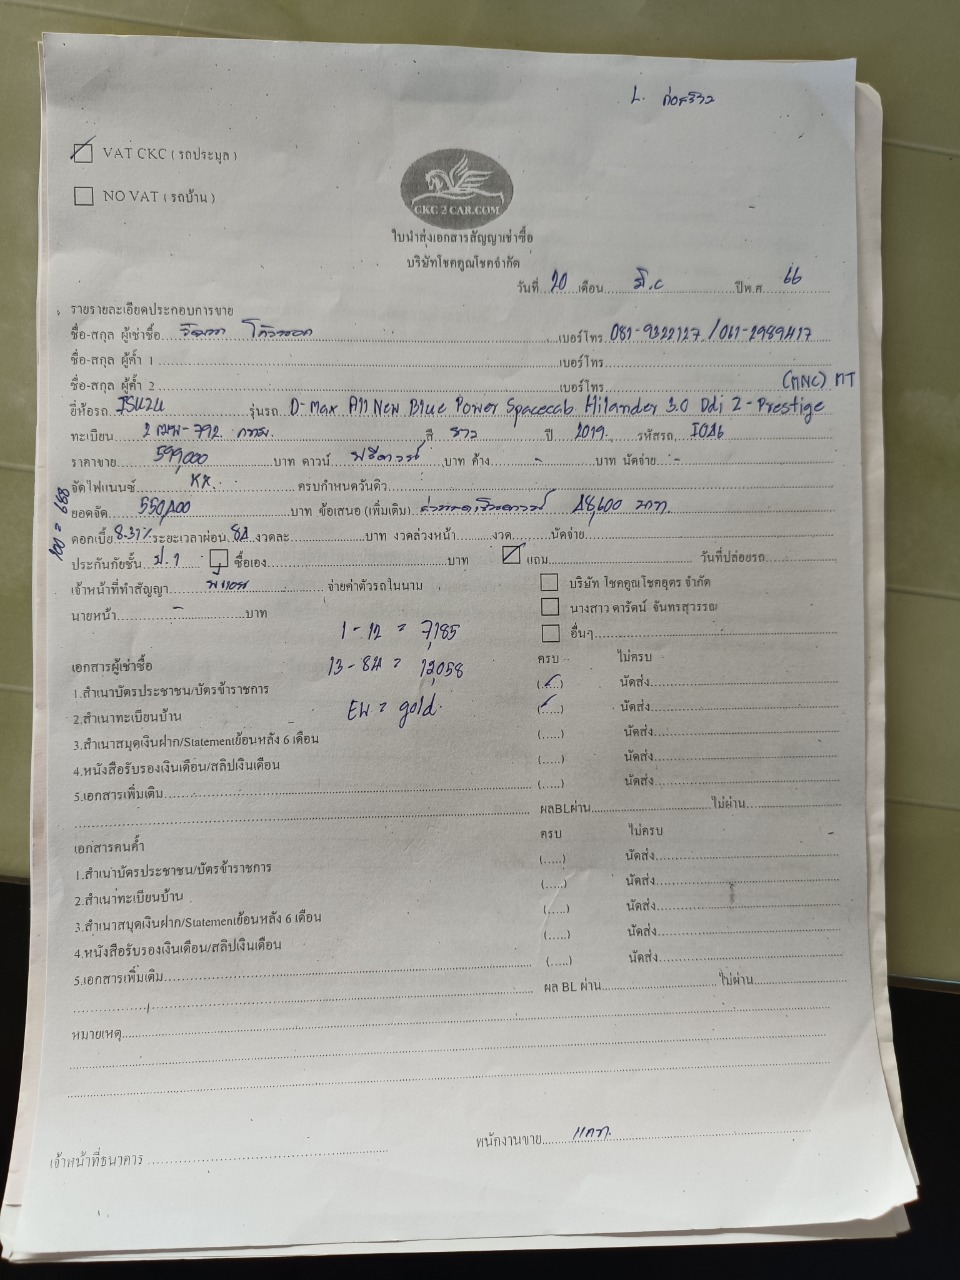 L.
VAT CKC ( รถประมูล )
NO VAT ( รถบ้าน )
CKC 2 CAR.COM
ใบนำส่งเอกสารสัญญาเช่าซื้อ
บริษัทโชคคูณโชคจำกัด
วันที่ 20 เดือน มิ.ย ปีพ.ศ. 66
รายรายละเอียดประกอบการขาย
ชื่อ-สกุล ผู้เช่าซื้อ เบอร์โทร 081-9322127 / 061-2989417
ชื่อ-สกุล ผู้ค้ำ 1 เบอร์โทร
ชื่อ-สกุล ผู้ค้ำ 2 เบอร์โทร (MNC) MT
ยี่ห้อรถ ISUZU รุ่นรถ D-Max All New Blue Power Spacecab Hilander 3.0 Ddi Z-Prestige
ทะเบียน กทม. สี ขาว ปี 2019 รหัสรถ
ราคาขาย 599,000 บาท ดาวน์ ฟรีดาวน์ บาท ค้าง - บาท นัดจ่าย -
จัดไฟแนนซ์ KK. ครบกำหนดวันดิว
ยอดจัด บาท ข้อเสนอ (เพิ่มเติม) บาท.
100 = 688
ดอกเบี้ย 8.37% ระยะเวลาผ่อน 84 งวดละ บาท งวดล่วงหน้า งวด นัดจ่าย
ประกันภัยชั้น ป.1 ซื้อเอง บาท แถม วันที่ปล่อยรถ
เจ้าหน้าที่ทำสัญญา จ่ายค่าตัวรถในนาม บริษัท โชคคูณโชคอุดร จำกัด
นายหน้า - บาท นางสาว ดารัตน์ จันทรสุวรรณ
อื่นๆ
1 - 12 = 7,185
13 - 84 = 12,058
EW = gold.
เอกสารผู้เช่าซื้อ ครบ ไม่ครบ
1.สำเนาบัตรประชาชน/บัตรข้าราชการ (.....) นัดส่ง
2.สำเนาทะเบียนบ้าน (.....) นัดส่ง
3.สำเนาสมุดเงินฝาก/Statementย้อนหลัง 6 เดือน (.....) นัดส่ง
4.หนังสือรับรองเงินเดือน/สลิปเงินเดือน (.....) นัดส่ง
5.เอกสารเพิ่มเติม (.....) นัดส่ง
ผลBLผ่าน ไม่ผ่าน
เอกสารคนค้ำ ครบ ไม่ครบ
1.สำเนาบัตรประชาชน/บัตรข้าราชการ (.....) นัดส่ง
2.สำเนาทะเบียนบ้าน (.....) นัดส่ง
3.สำเนาสมุดเงินฝาก/Statementย้อนหลัง 6 เดือน (.....) นัดส่ง
4.หนังสือรับรองเงินเดือน/สลิปเงินเดือน (.....) นัดส่ง
5.เอกสารเพิ่มเติม (.....) นัดส่ง
ผล BL ผ่าน ไม่ผ่าน
หมายเหตุ
เจ้าหน้าที่ธนาคาร พนักงานขาย